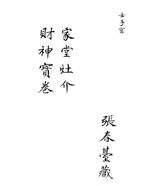 壬子宮
家堂灶介
財神寶卷
張春臺藏